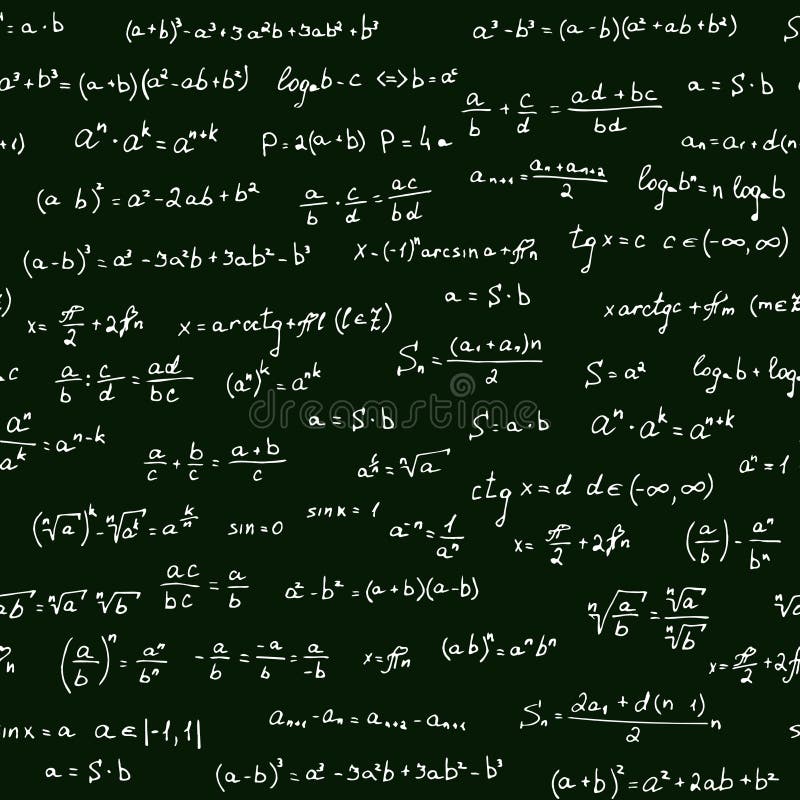 = a · b
(a+b)³-a³+3a²b+3ab²+b³
a³-b³=(a-b)(a²+ab+b²)
S
a³+b³=(a+b)(a²-ab+b²)
logₐb-c <=> b=aᶜ
a/b + c/d = (ad+bc)/bd
a = S·b
+1)
aⁿ·aᵏ=aⁿ⁺ᵏ
P=2(a+b) P=4a
aₙ=a₁+d(n
(a b)²=a²-2ab+b²
a/b · c/d = ac/bd
aₙ₊₁=(aₙ+aₙ₊₂)/2
logₐbⁿ=n logₐb
(a-b)³=a³-3a²b+3ab²-b³
x-(-1)ⁿarcsin a+πn
tg x=c c∈(-∞,∞)
a = S·b
x=π/2+2πn
x=arcctg+πl (l∈Z)
x arctgc+πm (m∈Z
Sₙ=(a₁+aₙ)n/2
c
a/b : c/d = ad/bc
(aⁿ)ᵏ=aⁿᵏ
S=a²
logₐb+log
dreamstime
aⁿ/aᵏ=aⁿ⁻ᵏ
a = S·b
S=a·b
aⁿ·aᵏ=aⁿ⁺ᵏ
a/c + b/c = (a+b)/c
ⁿ√a
aⁿ=1
ctg x=d d∈(-∞,∞)
(ⁿ√a)ᵏ-ⁿ√aᵏ=a^(k/n)
sin=0
sin x=1
a⁻ⁿ=1/aⁿ
x=π/2+2πn
(a/b)-aⁿ/bⁿ
ac/bc = a/b
a²-b²=(a+b)(a-b)
ab=ⁿ√a ⁿ√b
ⁿ√(a/b)=ⁿ√a/ⁿ√b
ⁿ√
πn
(a/b)ⁿ=aⁿ/bⁿ
-a/b=-a/b=a/-b
x=πn
(ab)ⁿ=aⁿbⁿ
x=π/2+2π
inx=a a∈|-1,1|
aₙ₊₁-aₙ=aₙ₊₂-aₙ₊₁
Sₙ=(2a₁+d(n 1))/2 n
s
a = S·b
(a-b)³=a³-3a²b+3ab²-b³
(a+b)²=a²+2ab+b²